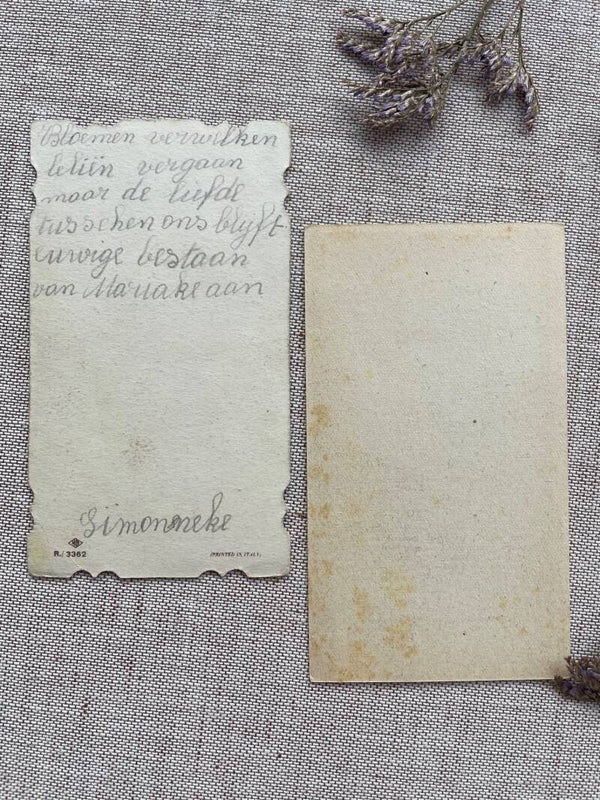 Bloemen verwelken
leliën vergaan
maar de liefde
tusschen ons blyft
euwige bestaan
van Mariake aan
Simonneke
R./3362
(PRINTED IN ITALY)